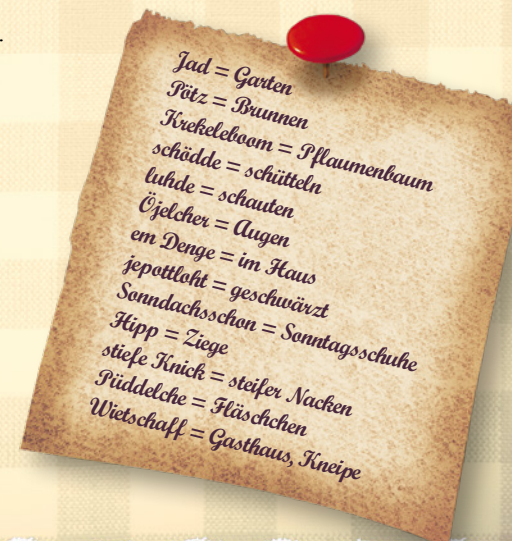 Jad = Garten
Pötz = Brunnen
Krekeleboom = Pflaumenbaum
schödde = schütteln
luhde = schauten
Öjelcher = Augen
em Denge = im Haus
jepottloht = geschwärzt
Sonndachsschon = Sonntagsschuhe
Hipp = Ziege
stiefe Knick = steifer Nacken
Püddelche = Fläschchen
Wietschaff = Gasthaus, Kneipe